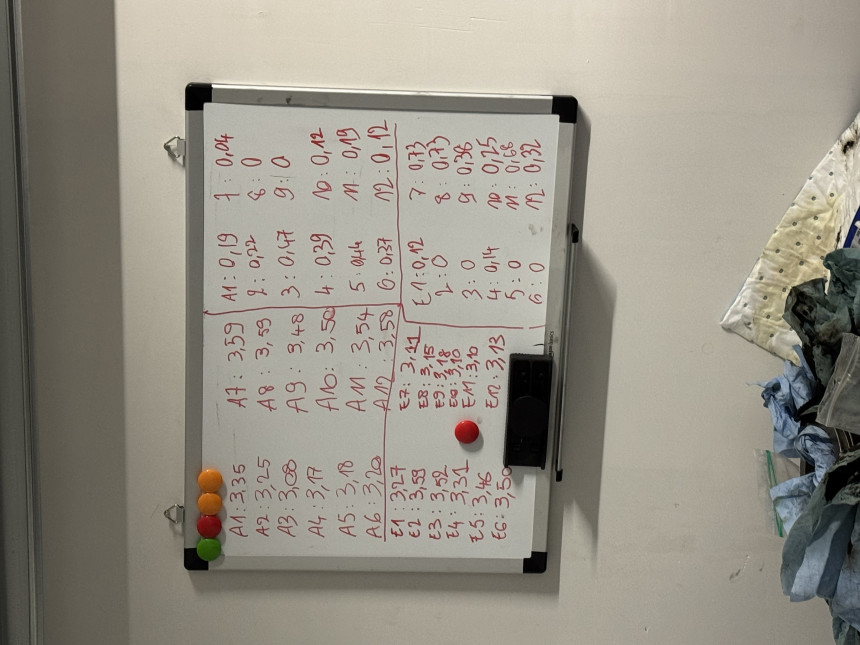 A1: 3,35
A2: 3,25
A3: 3,00
A4: 3,17
A5: 3,18
A6: 3,20
A7: 3,59
A8: 3,59
A9: 3,48
A10: 3,50
A11: 3,54
A12: 3,58
A1: 0,19
2: 0,22
3: 0,47
4: 0,39
5: 0,44
6: 0,37
7: 0,04
8: 0
9: 0
10: 0,12
11: 0,19
12: 0,12
E1: 3,27
E2: 3,59
E3: 3,52
E4: 3,31
E5: 3,46
E6: 3,50
E7: 3,11
E8: 3,15
E9: 3,18
E10: 3,10
E11: 3,10
E12: 3,13
E1: 0,12
2: 0
3: 0
4: 0,14
5: 0
6: 0
7: 0,73
8: 0,73
9: 0,36
10: 0,75
11: 0,68
12: 0,32